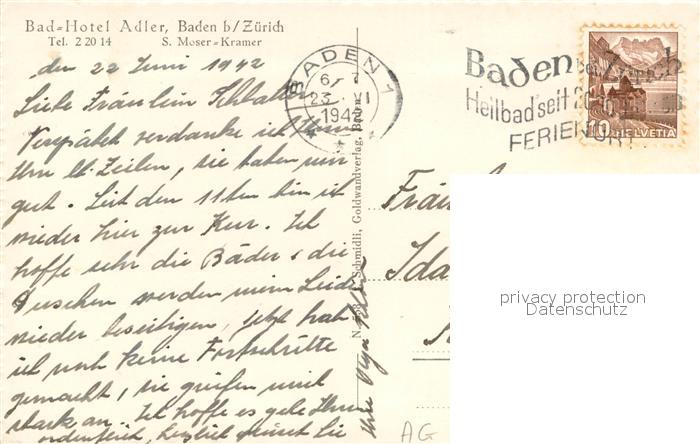 Bad=Hotel Adler, Baden b/Zürich
Tel. 2 20 14 S. Moser=Kramer
den 22 Juni 1942
Liebe Fräulein
Verspätet verdanke ich Ihnen
Ihre lb. Zeilen, sie haben mir
gut. Seit dem 11ten bin ich
wieder hier zur Kur. Ich
hoffe sehr die Bäder & die
Duschen werden mein Leiden
wieder beseitigen, jetzt hab
ich noch keine Fortschritte
gemacht, sie greifen mich
stark an. Ich hoffe es gehe Ihnen
ordentlich, herzlich grüsst Sie
Ihre Olga
BADEN 1
23. VI
1942
Baden bei Zürich
Heilbad seit
FERIENORT
10 HELVETIA
Schmidli, Goldwandverlag, Baden.
Fräu
Ida
privacy protection
Datenschutz
AG